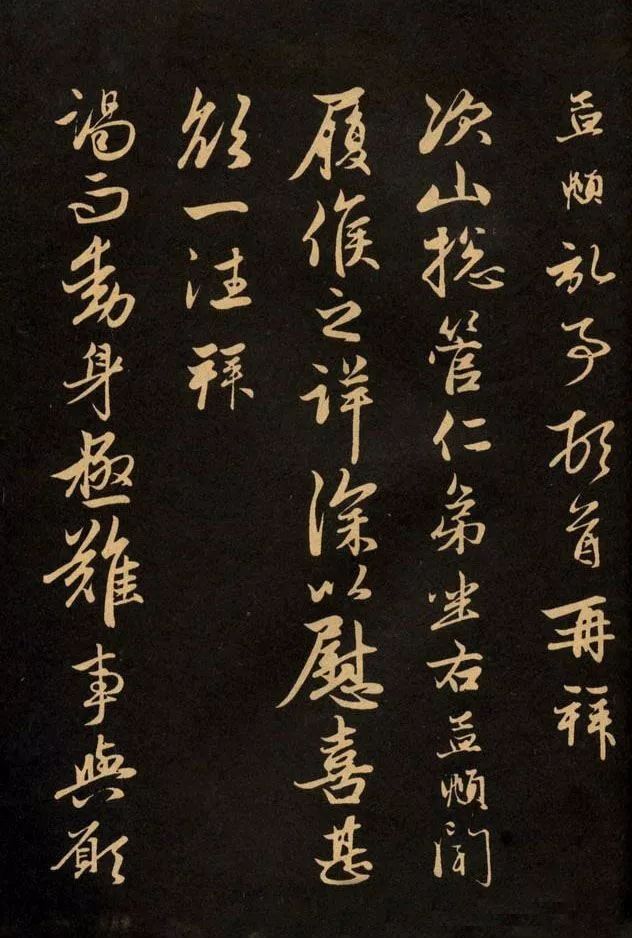 孟頫記事頓首再拜
次山摠管仁弟坐右孟頫聞
履候之詳深以慰喜甚
欲一往拜
謁而動身極難事與願